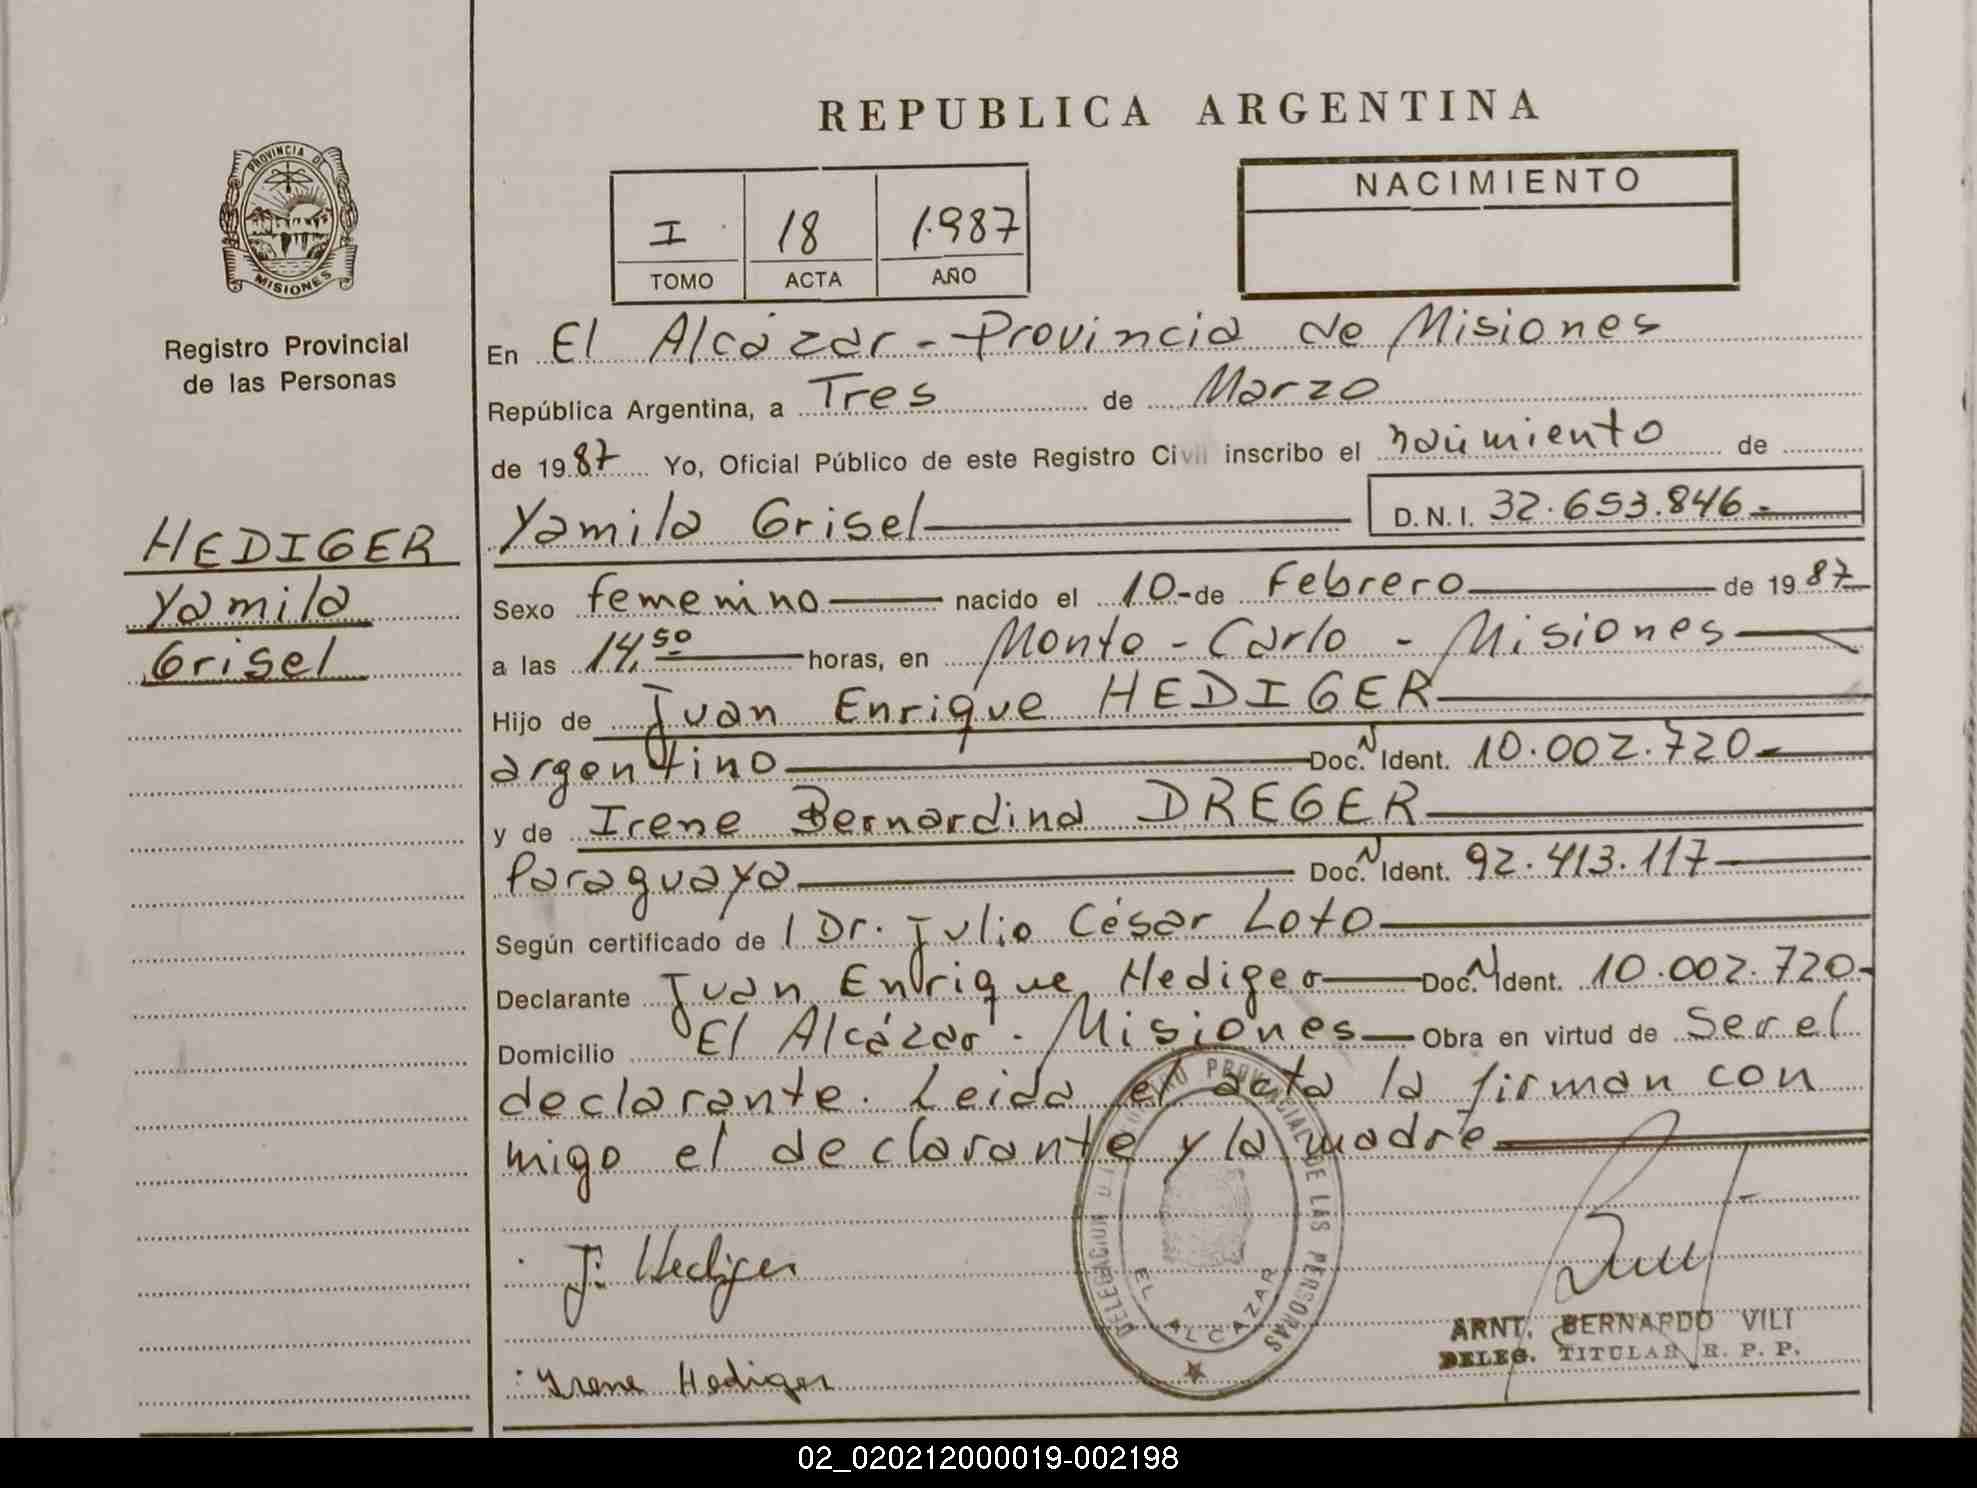 REPUBLICA ARGENTINA
PROVINCIA DE
MISIONES
Registro Provincial
de las Personas
I 18 1.987
TOMO ACTA AÑO
NACIMIENTO
En El Alcázar - Provincia de Misiones
República Argentina, a Tres de Marzo
de 1987 Yo, Oficial Público de este Registro Civil inscribo el nacimiento de
Yamila Grisel D.N.I. 32.653.846
HEDIGER
Yamila
Grisel
Sexo femenino nacido el 10 - de Febrero de 1987
a las 14,50 horas, en Monte - Carlo - Misiones
Hijo de Juan Enrique HEDIGER
argentino Doc. N Ident. 10.002.720
y de Irene Bernardina DREGER
Paraguaya Doc. N Ident. 92.413.117
Según certificado de / Dr. Julio César Loto
Declarante Juan Enrique Hediger Doc. N Ident. 10.002.720
Domicilio El Alcázar - Misiones Obra en virtud de Ser el
declarante. Leida el acta la firman con
migo el declarante y la madre
J. Hediger
Irene Hediger
PROVINCIAL DE LAS PERSONAS
DELEGACION
EL ALCAZAR
ARNT. BERNARDO VILI
DELEG. TITULAR R. P. P.
02_020212000019-002198